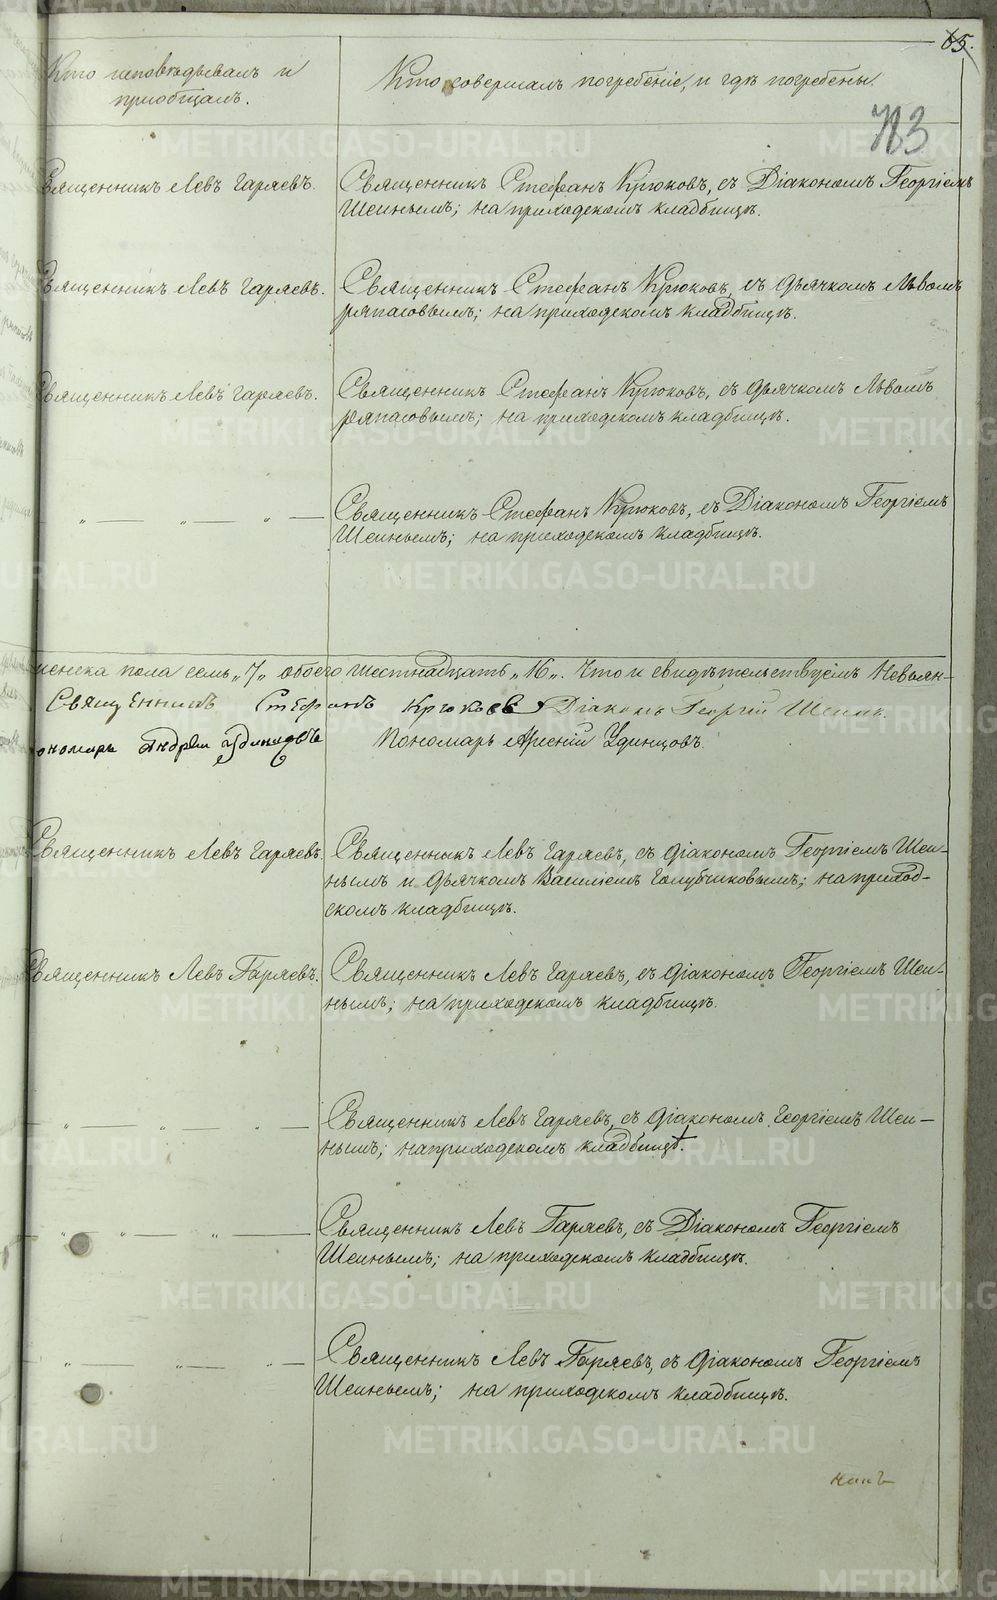 65.
Кто исповѣдывалъ и
приобщалъ.
Кто совершалъ погребеніе, и гдѣ погребены.
783
Священникъ Левъ Гаряевъ.
Священникъ Стефанъ Крюковъ, съ Діакономъ Георгіемъ
Шеинымъ; на приходскомъ кладбищѣ.
Священникъ Левъ Гаряевъ.
Священникъ Стефанъ Крюковъ, съ дьячкомъ Львомъ
Ряпасовымъ; на приходскомъ кладбищѣ.
Священникъ Левъ Гаряевъ.
Священникъ Стефанъ Крюковъ, съ дьячкомъ Львомъ
Ряпасовымъ; на приходскомъ кладбищѣ.
„ — „ — „ —
Священникъ Стефанъ Крюковъ, съ Діакономъ Георгіемъ
Шеинымъ; на приходскомъ кладбищѣ.
женска пола семь „7„ обоего шестнадцать „16„. Что и свидѣтельствуемъ Невьян-
Священникъ Стефанъ Крюковъ Діаконъ Георгій Шеинъ.
пономарь Андрей Удинцовъ Пономарь Арсеній Удинцовъ.
Священникъ Левъ Гаряевъ.
Священникъ Левъ Гаряевъ, съ діакономъ Георгіемъ Шеи-
нымъ и дьячкомъ Василіемъ Голубчиковымъ; на приход-
скомъ кладбищѣ.
Священникъ Левъ Гаряевъ.
Священникъ Левъ Гаряевъ, съ діакономъ Георгіемъ Шеи-
нымъ; на приходскомъ кладбищѣ.
„ — „ — „ —
Священникъ Левъ Гаряевъ, съ діакономъ Георгіемъ Шеи-
нымъ; на приходскомъ кладбищѣ.
„ — „ — „ —
Священникъ Левъ Гаряевъ, съ Діакономъ Георгіемъ
Шеинымъ; на приходскомъ кладбищѣ.
„ — „ — „ —
Священникъ Левъ Гаряевъ, съ діакономъ Георгіемъ
Шеинымъ; на приходскомъ кладбищѣ.
METRIKI.GASO-URAL.RU